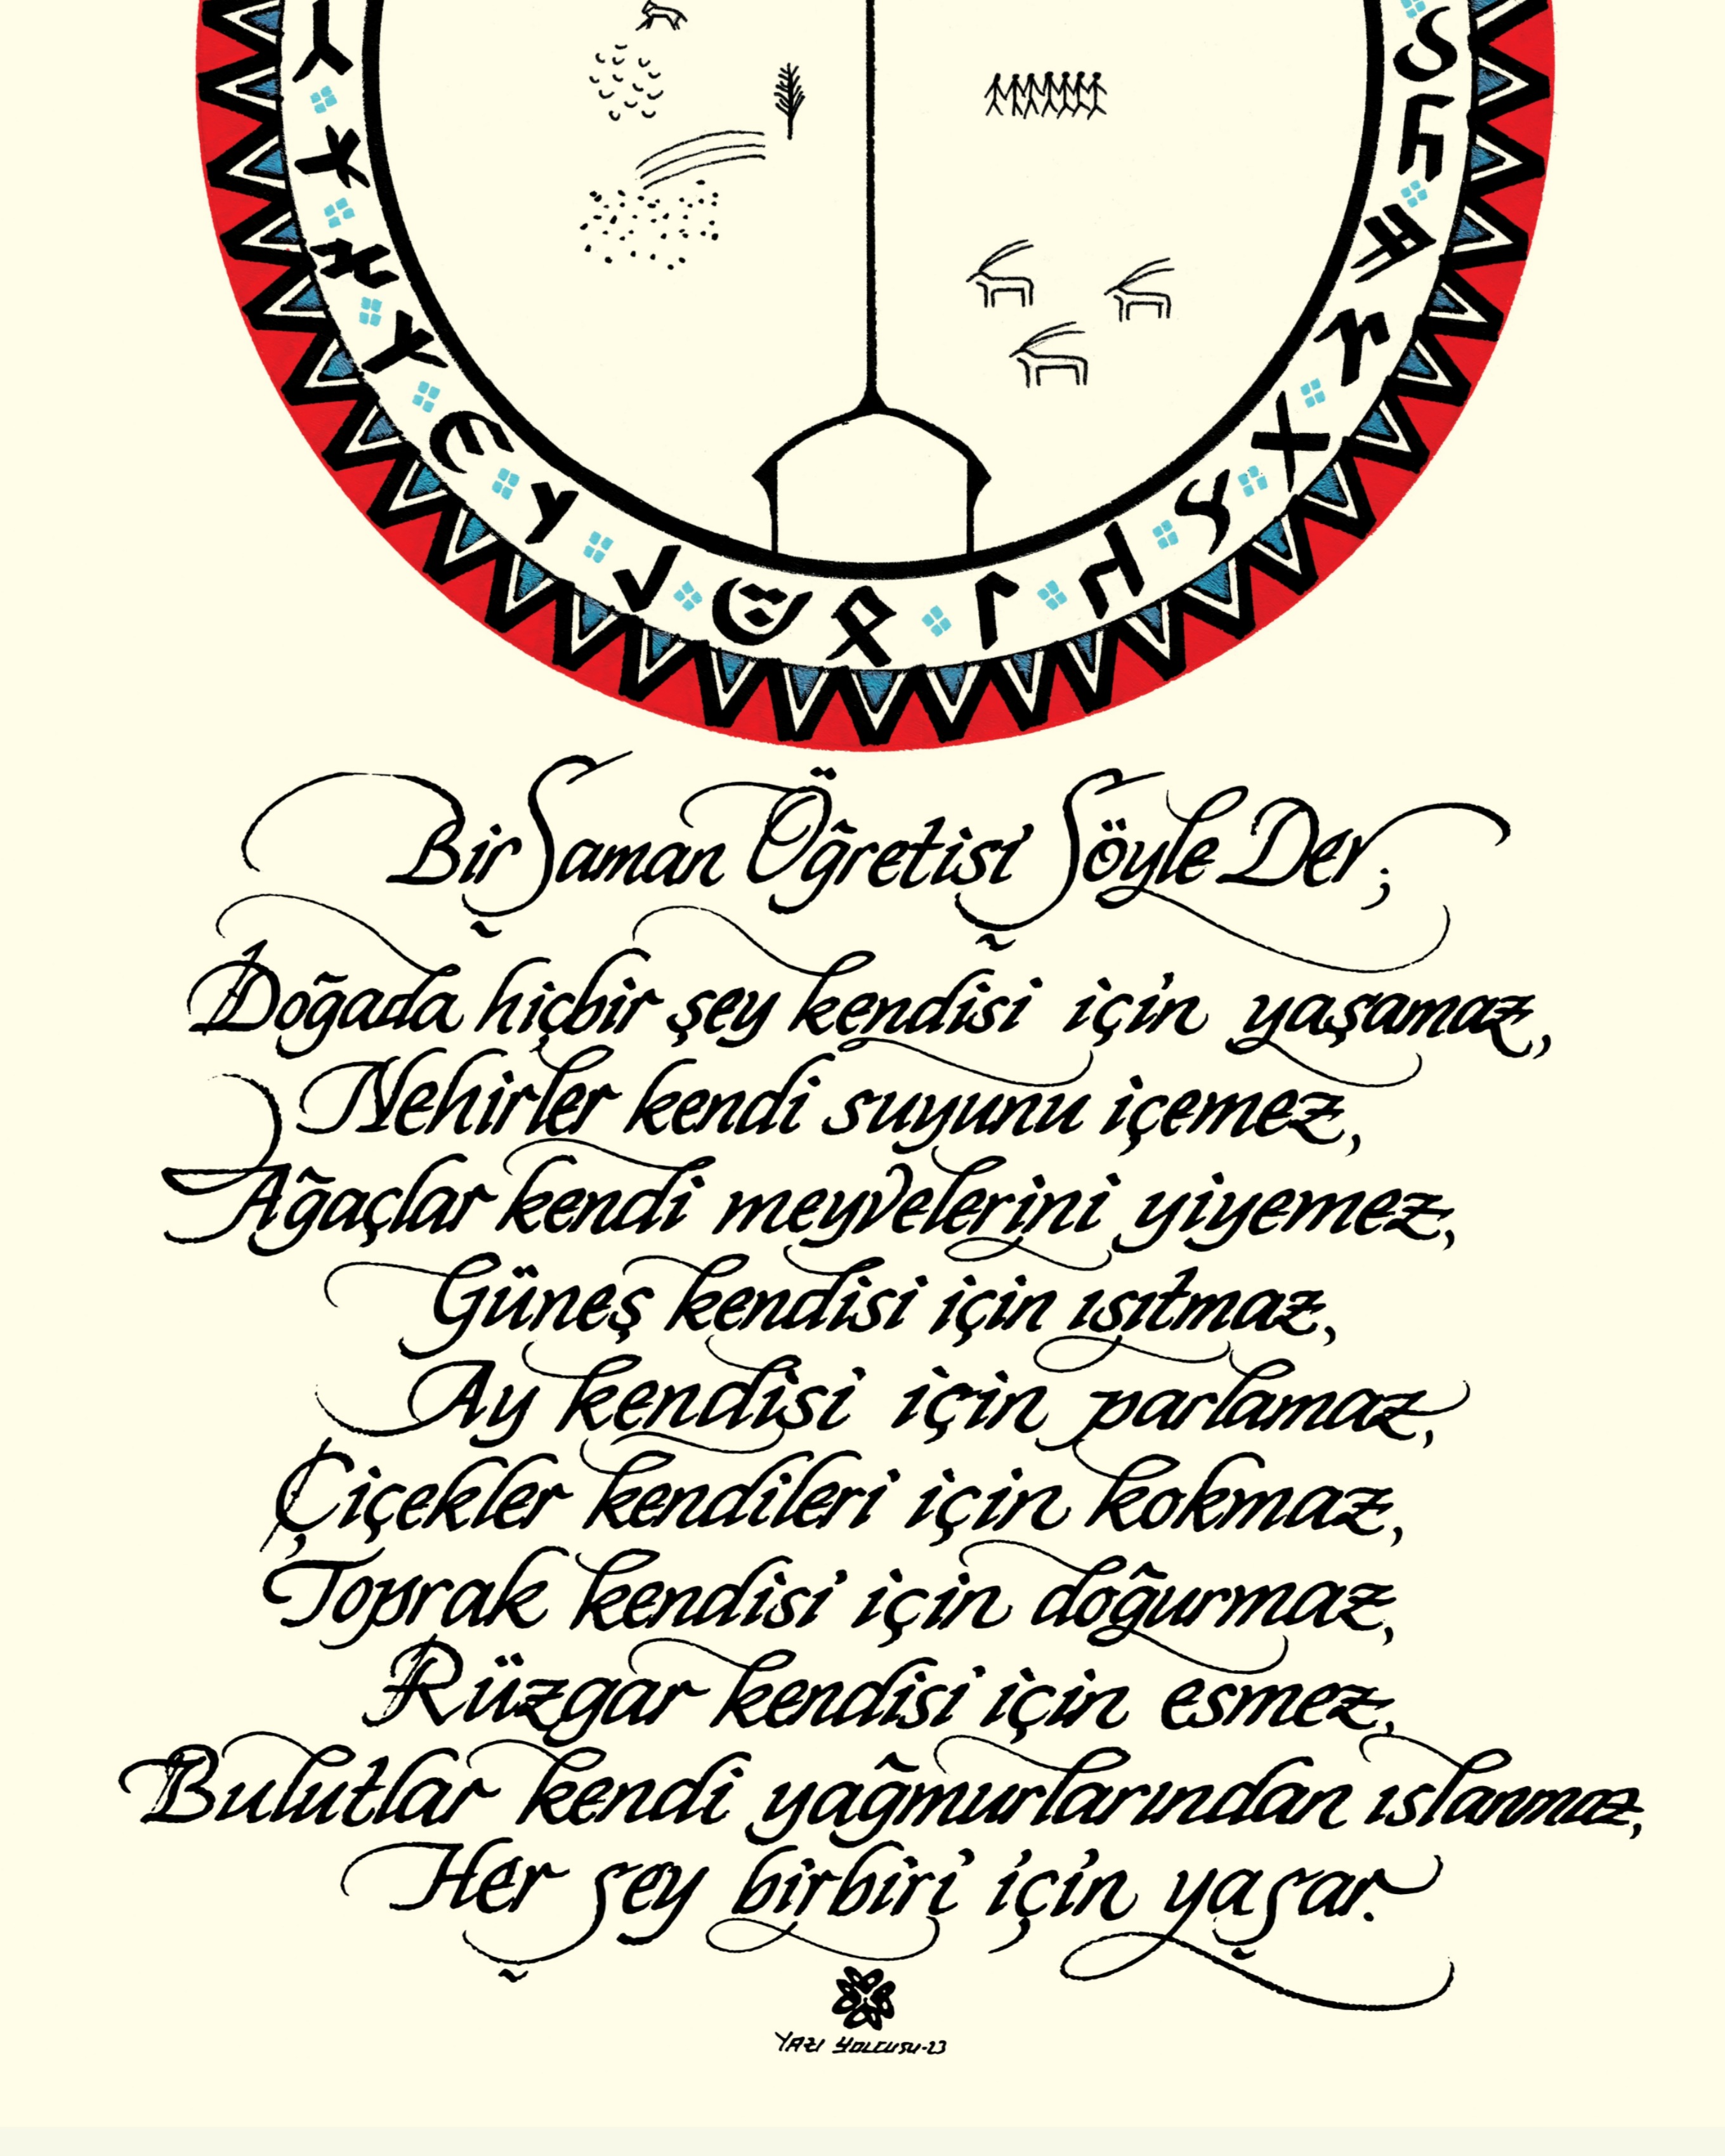 Bir Şaman Öğretisi Şöyle Der;
Doğada hiçbir şey kendisi için yaşamaz,
Nehirler kendi suyunu içemez,
Ağaçlar kendi meyvelerini yiyemez,
Güneş kendisi için ısıtmaz,
Ay kendisi için parlamaz,
Çiçekler kendileri için kokmaz,
Toprak kendisi için doğurmaz,
Rüzgar kendisi için esmez,
Bulutlar kendi yağmurlarından ıslanmaz,
Her şey birbiri için yaşar.
YAZI YOLCUSU-23